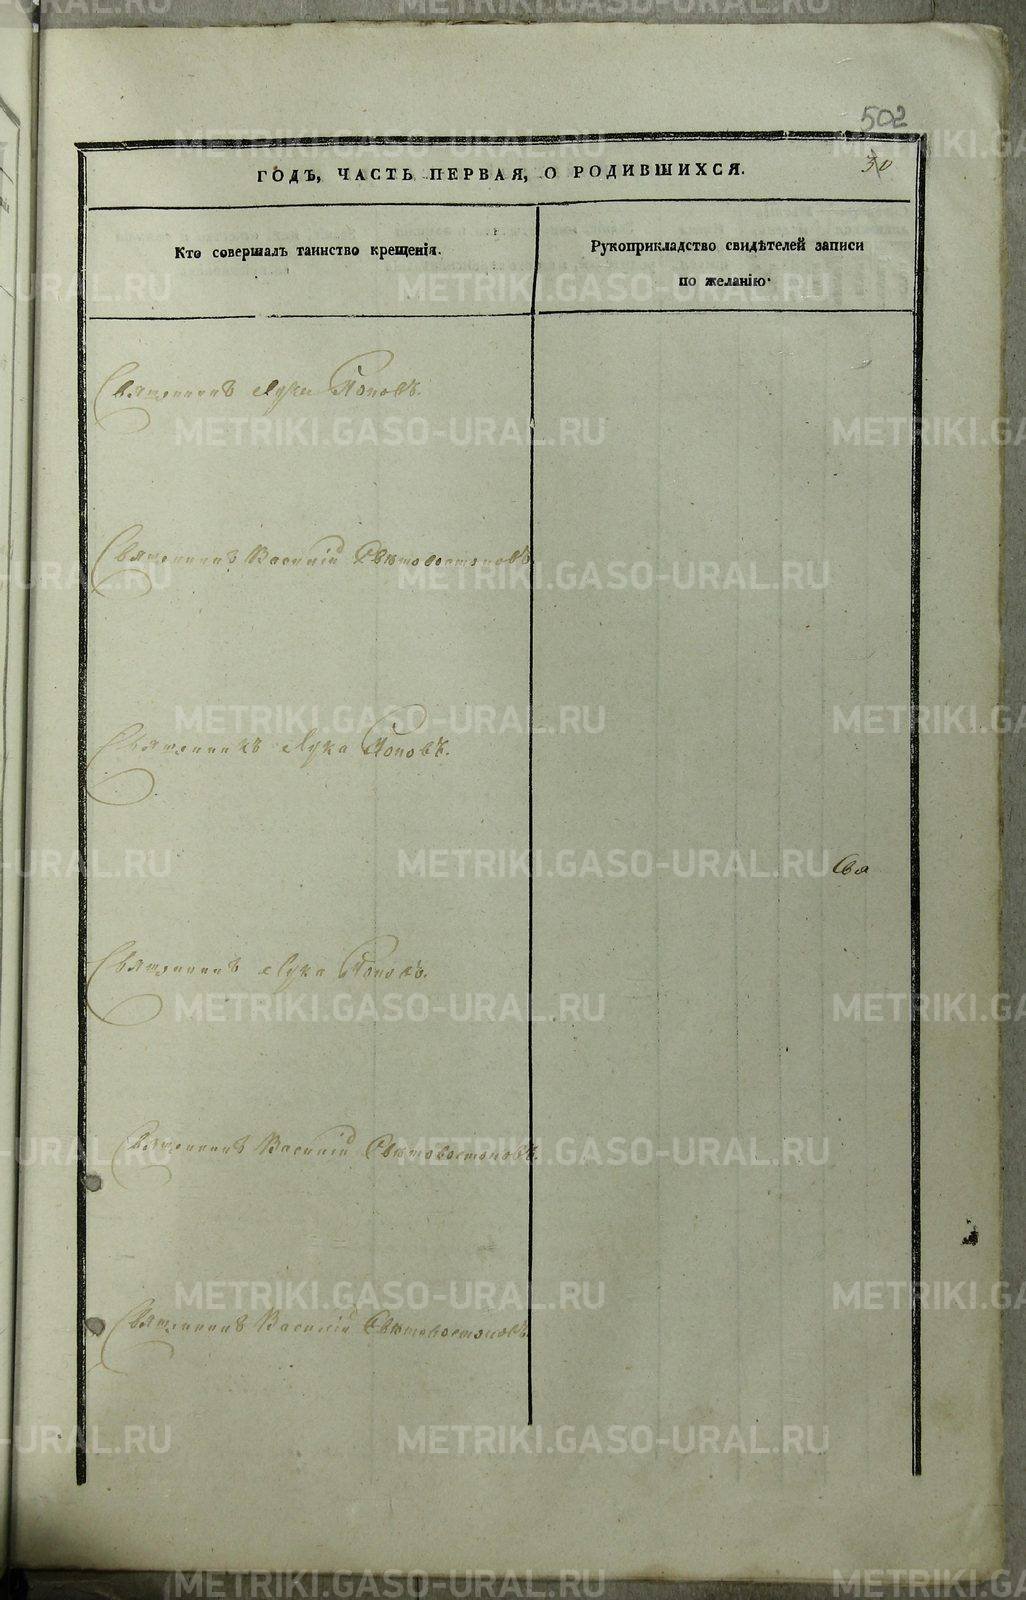 502
30
ГОДЪ, ЧАСТЬ ПЕРВАЯ, О РОДИВШИХСЯ.
Кто совершалъ таинство крещенія.
Рукоприкладство свидѣтелей записи
по желанію.
Священникъ Лука Поповъ.
Священникъ Василій Свѣтовостоковъ
Священникъ Лука Поповъ.
Свя
Священникъ Лука Поповъ.
Священникъ Василій Свѣтовостоковъ.
Священникъ Василій Свѣтовостоковъ.
METRIKI.GASO-URAL.RU